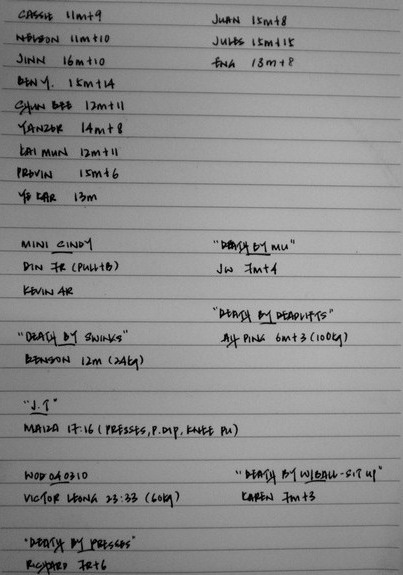 CASSIE 11m+9
NELSON 11m+10
JINN 16m+10
BEN Y. 15m+14
CHUN BEE 12m+11
YANZER 14m+8
KAI MUN 12m+11
PREVIN 15m+6
YE KAR 13m
JUAN 15m+8
JULES 15m+15
ENG 13m+8
MINI CINDY
DIN 7R (PULL+B)
KEVIN 4R
"DEATH BY MU"
JW 7m+4
"DEATH BY DEADLIFTS"
AH PING 6m+3 (100kg)
"DEATH BY SWINGS"
BENSON 12m (24kg)
"J.T"
MAIZA 17:16 (PRESSES, P.DIP, KNEE PU)
WOD 040310
VICTOR LEONG 23:33 (60kg)
"DEATH BY W/BALL-SIT UP"
KAREN 7m+3
"DEATH BY PRESSES"
RICHARD 7R+6